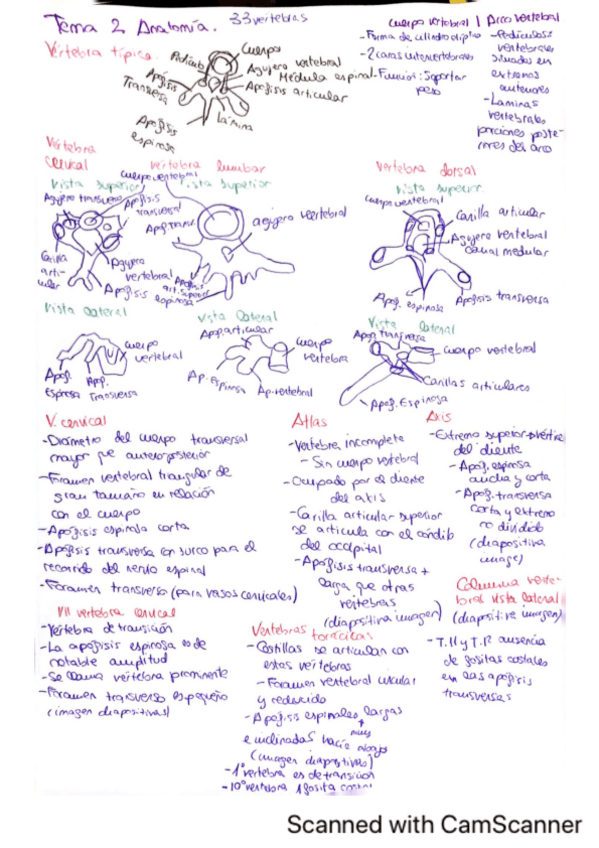 Tema 2 Anatomía. 33 vertebras
Cuerpo vertebral | Arco vertebral
-Forma de cilindro elíptico
-2 caras intervertebrales
-Función: Soportar
peso
-Pedículos:
vertebrales
situados en
extremos
anteriores
-Laminas
vertebrales
porciones poste-
riores del arco
Vértebra típica
Pedículo
Cuerpo
Agujero vertebral
Médula espinal
Apófisis articular
Apófisis
Transversa
Lámina
Apófisis
espinosa
Vértebra
cervical
vista superior
Agujero transverso
Apófisis
transversal
Carilla
arti-
cular
Agujero
vertebral
Apófisis espinosa
vertebra lumbar
cuerpo vertebral
vista superior
Apof. trans.
agujero vertebral
Apófisis
art. superior
vertebra dorsal
vista superior
cuerpo vertebral
Carilla articular
Agujero vertebral
canal medular
Apof. espinosa
Apófisis transversa
vista lateral
cuerpo
vertebral
Apof.
Espinosa
Apof.
Transversa
vista lateral
Apof. articular
cuerpo
vertebra
Ap. Espinosa
Ap. vertebral
Vista lateral
Apof. transversa
cuerpo vertebral
Carillas articulares
Apof. Espinosa
V. cervical
-Diámetro del cuerpo transversal
mayor que anteroposterior
-Foramen vertebral triangular de
gran tamaño en relación
con el cuerpo
-Apófisis espinosa corta
-Apófisis transversa con surco para el
recorrido del nervio espinal
-Foramen transverso (para vasos cervicales)
VII vertebra cervical
-Vertebra de transición
-La apófisis espinosa es de
notable amplitud
-Se llama vertebra prominente
-Foramen transverso es pequeño
(imagen diapositivas)
Atlas
-Vertebra incomplete
- Sin cuerpo vertebral
-Ocupado por el diente
del axis
-Carilla articular superior
se articula con el cóndilo
del occipital
-Apófisis transversa +
larga que otras
vertebras
(diapositiva imagen)
Vertebras
torácicas
-Costillas se articulan con
estas vertebras
-Foramen vertebral circular
y reducido
-Apófisis espinales largas
e inclinadas muy hacia abajo
(imagen diapositivas)
-1ª vertebra es de transición
-10º vertebra 1 fosita costal
Axis
-Extremo superior → vértice
del diente
-Apof. espinosa
ancha y corta
-Apof. transversa
corta y extremo
no dividido
(diapositiva
image)
Columna verte-
bral vista lateral
(diapositive imagen)
-T.11 y T.12 ausencia
de fositas costales
en las apófisis
transversas
Scanned with CamScanner